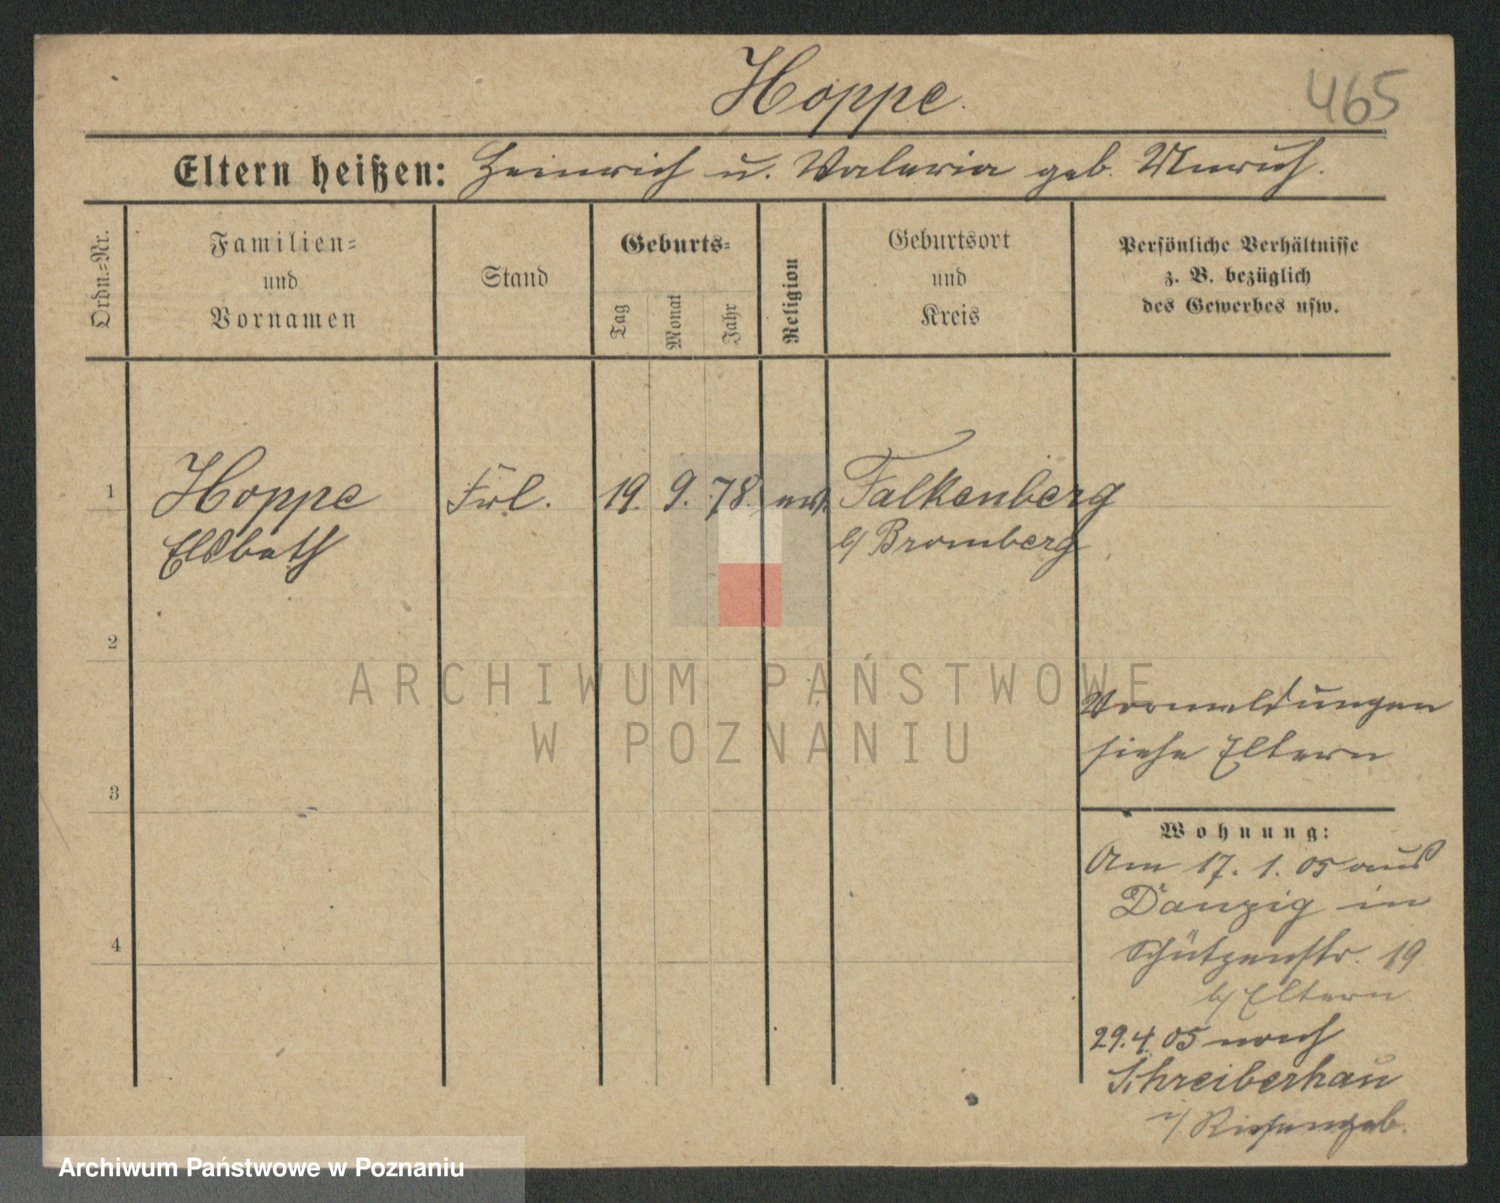 Hoppe.
465
Eltern heißen: Heinrich u. Valeria geb. Unruh.
Ordn.-Nr.
Familien-
und
Vornamen
Stand
Geburts-
Tag
Monat
Jahr
Religion
Geburtsort
und
Kreis
Persönliche Verhältnisse
z. B. bezüglich
des Gewerbes usw.
1
Hoppe
Elsbeth
Frl.
19. 9. 78.
Falkenberg
b/ Bromberg
2
3
4
Vormeldungen
siehe Eltern
Wohnung:
Am 17. 1. 05 aus
Danzig in
Schützenstr. 19
b/ Eltern
29. 4. 05 nach
Schreiberhau
i/ Riesengeb.
ARCHIWUM PAŃSTWOWE
W POZNANIU
Archiwum Państwowe w Poznaniu